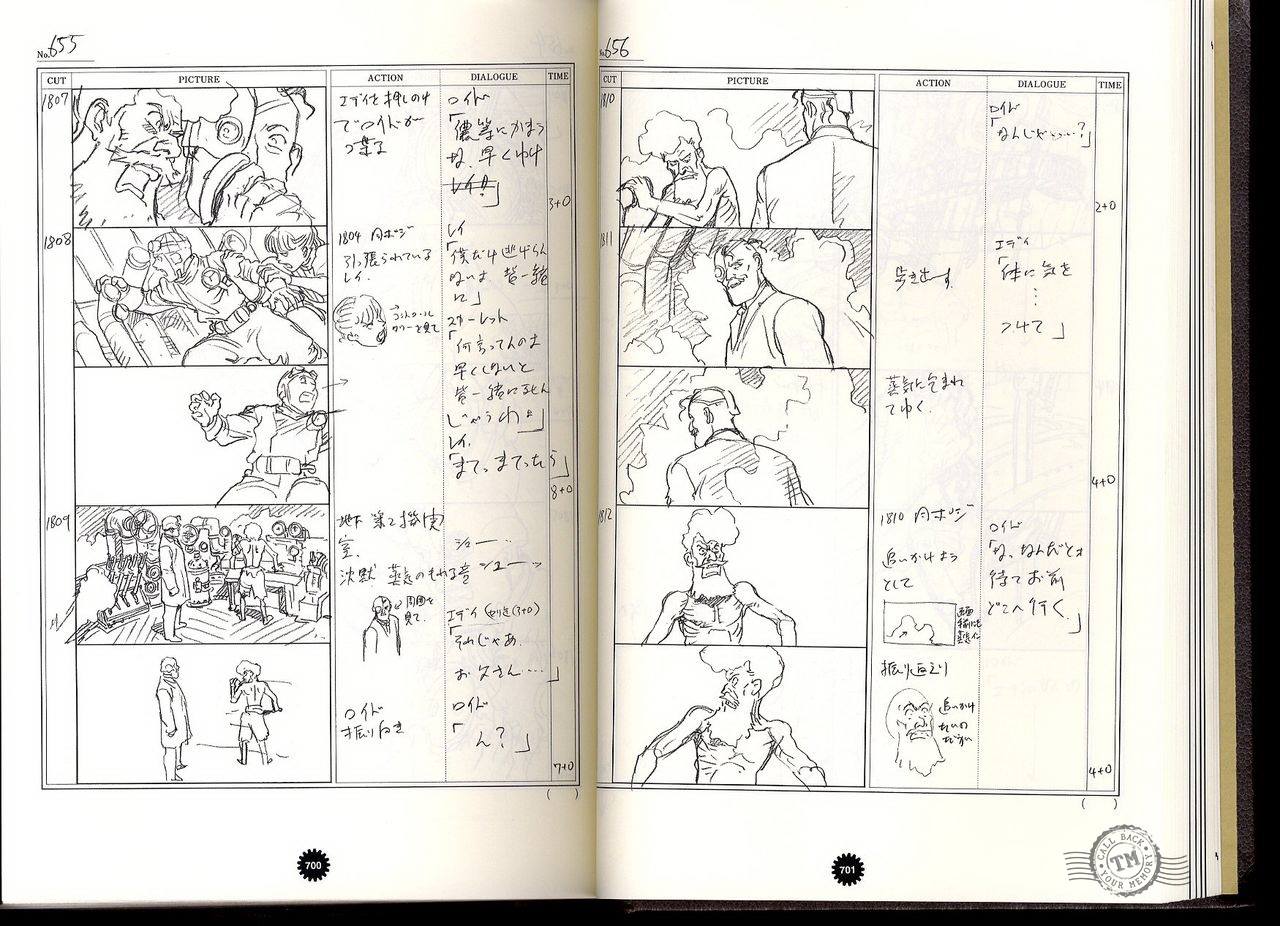 No.655
CUT PICTURE ACTION DIALOGUE TIME
1807
エディを押しのけ
でロイドが
ロイド
「儂等にかまう
な、早くゆけ
3+0
1808
1804 同ポジ
引っ張られている
レイ.
を見て
レイ
「僕だけ逃げらん
ないよ 皆一緒
に」
スカーレット
「何言ってんのよ
早くしないと
皆一緒に死ん
じゃうわよ」
レイ.
「まてっまてったら」
8+0
1809
地下 第2機関
室.
沈黙 蒸気のもれる音
シュー…
シューーッ
周囲を
見て.
エディ (3+0)
「それじゃあ.
お父さん…」
ロイド
振り向き
ロイド
「ん?」
7+0
( )
700
No.656
CUT PICTURE ACTION DIALOGUE TIME
1810
ロイド
「なんじゃと……?」
2+0
1811
歩き出す.
エディ
「体に気を
…
つけて」
蒸気に包まれ
てゆく.
4+0
1812
1810 同ポジ
追いかけよう
として
画面
蒸気に
ロイド
「な、なんだとォ
待てお前
どこへ行く.」
振り返り
追いかけ
たいの
だが
4+0
( )
701
CALL BACK
TM
YOUR MEMORY